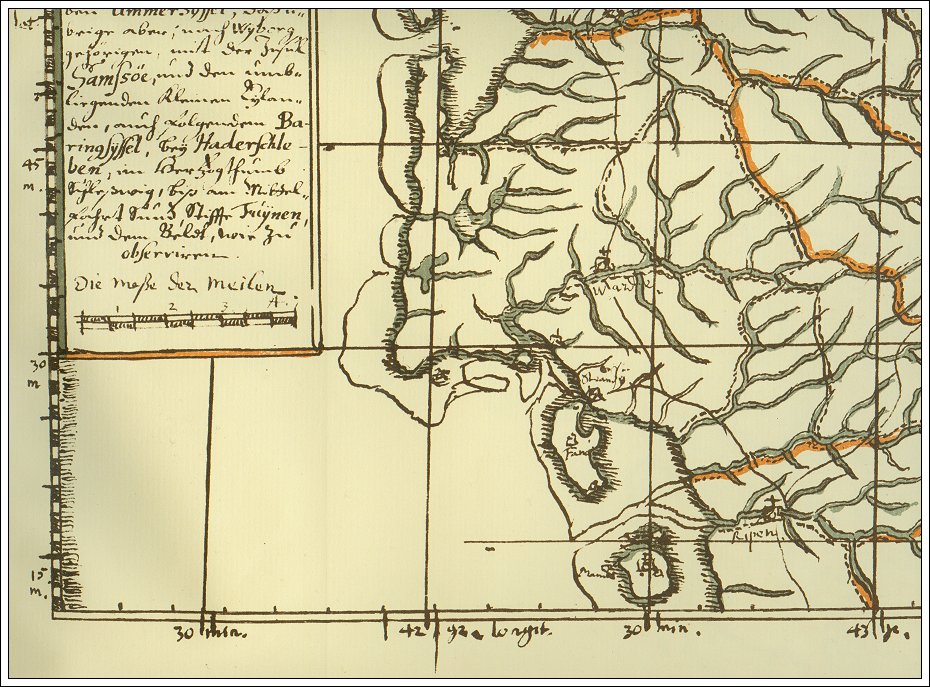 ben Ammersyssel,
brige aber, nach Wyberg
gehörigen, mit der Insul
Samsöe, und den umb-
liegenden kleinen Eylan-
den, auch folgendem Ba-
ringsyssel, bey Haderschle-
ben, im Herzogthumb
Schleswig, biß an Middel-
fahrt Sund Stiffts Füynen,
und dem Beldt, wie zu
observiren.
Die maße der Meilen
1 2 3 4
45
m.
30
m
15
m.
Warde
Ripen
30 min.
42 gr. longit.
30 min.
43 gr.